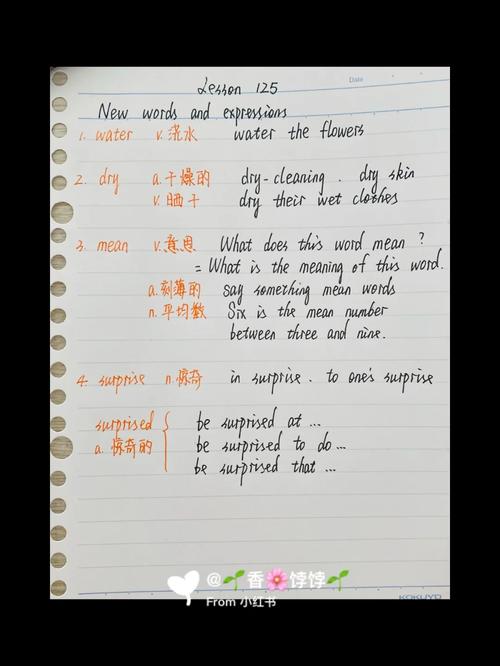 Date
Lesson 125
New words and expressions
1. water v. 浇水 water the flowers
2. dry a. 干燥的 dry-cleaning . dry skin
v. 晒干 dry their wet clothes
3. mean v. 意思 What does this word mean ?
= What is the meaning of this word.
a. 刻薄的 say something mean words
n. 平均数 Six is the mean number
between three and nine.
4. surprise n. 惊奇 in surprise . to one's surprise
surprised be surprised at ...
a. 惊奇的 be surprised to do ...
be surprised that ...
@🌱香🌸饽饽🌱
From 小红书
KOKUYO